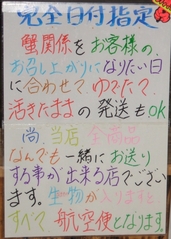 完全日付指定
蟹関係をお客様の
お召し上がりになりたい日
に合わせて、ゆでたて、
活きたままの発送もOK
尚、当店全商品
なんでも一緒にお送り
する事が出来る店でござい
ます。生物が入りますと、
すべて航空便となります。